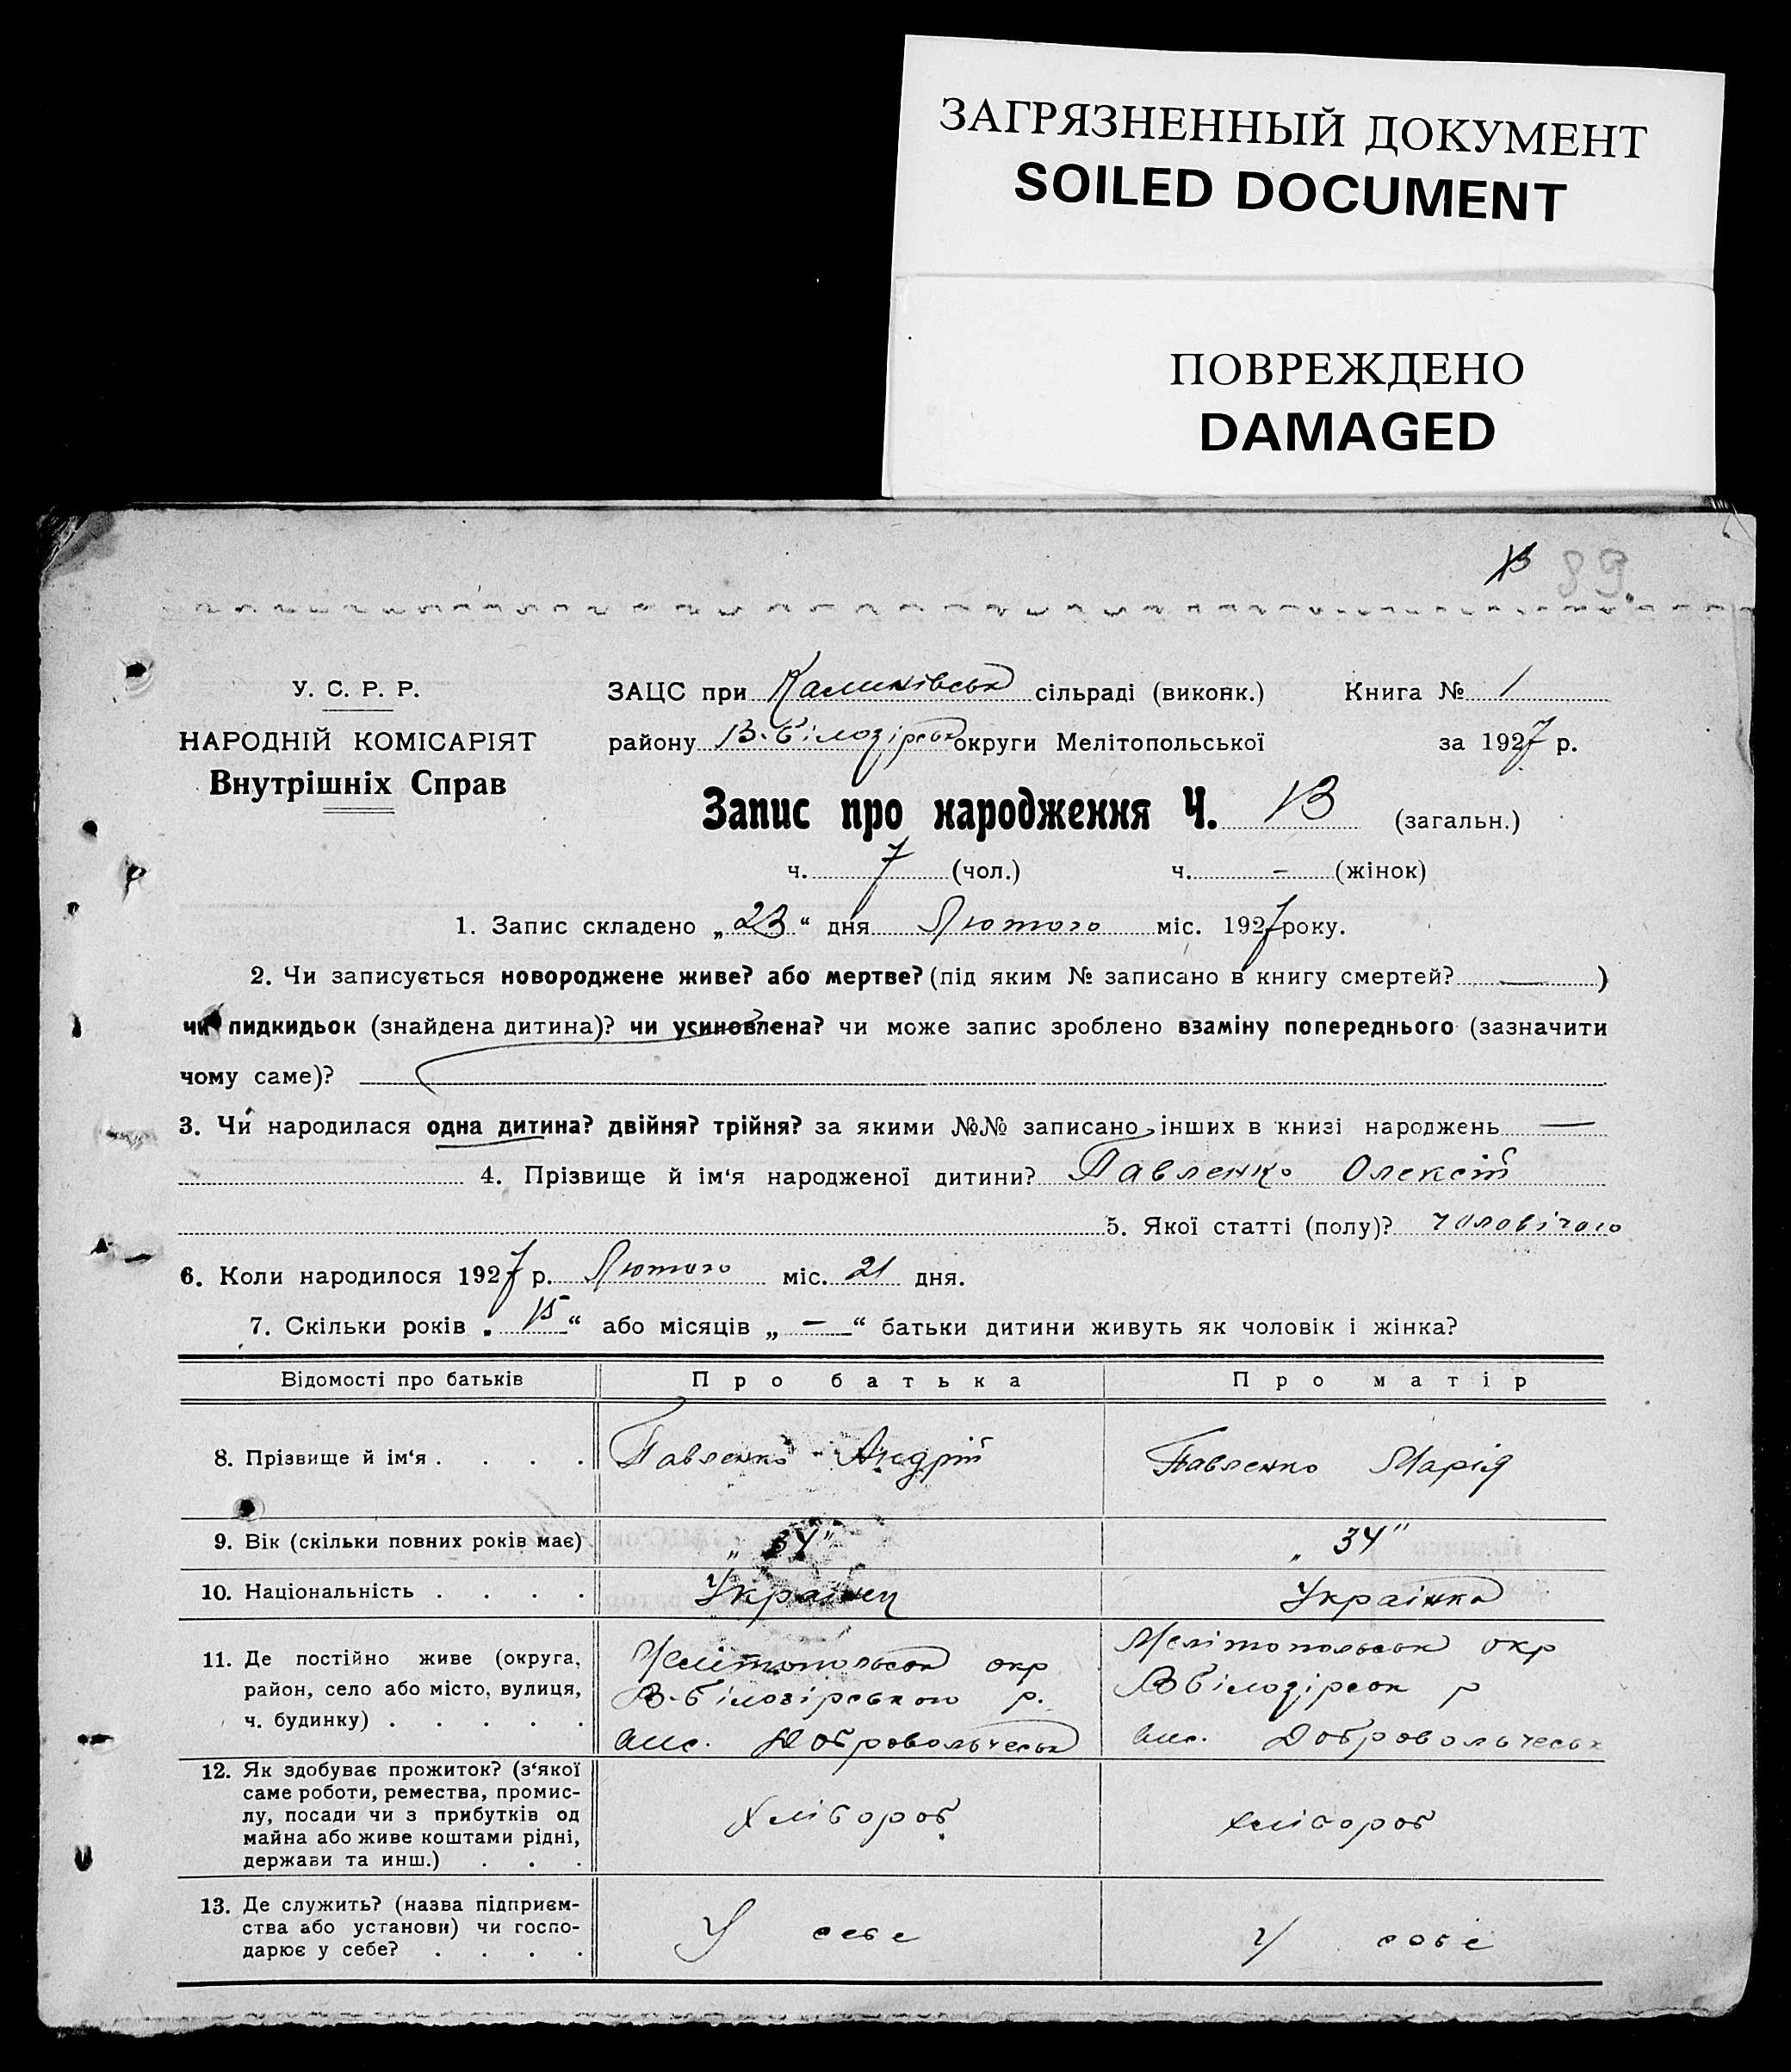 ЗАГРЯЗНЕННЫЙ ДОКУМЕНТ
SOILED DOCUMENT
ПОВРЕЖДЕНО
DAMAGED
13 89.
У. С. Р. Р.
НАРОДНІЙ КОМІСАРІЯТ
Внутрішніх Справ
ЗАЦС при сільраді (виконк.) Книга № 1
району В.-Білозірськ округи Мелітопольської за 1927 р.
Запис про народження Ч. 13 (загальн.)
ч. 7 (чол.) ч. - (жінок)
1. Запис складено „23“ дня Лютого міс. 1927 року.
2. Чи записується новороджене живе? або мертве? (під яким № записано в книгу смертей? — )
чи пидкидьок (знайдена дитина)? чи усиновлена? чи може запис зроблено взаміну попереднього (зазначити
чому саме)?
3. Чи народилася одна дитина? двійня? трійня? за якими №№ записано інших в книзі народжень —
4. Прізвище й ім‘я народженої дитини? Павленко Олексій
5. Якої статті (полу)? чоловічого
6. Коли народилося 1927 р. Лютого міс. 21 дня.
7. Скільки років „ 15 “ або місяців „ — “ батьки дитини живуть як чоловік і жінка?
Відомості про батьків Про батька Про матір
8. Прізвище й ім‘я . . . . Павленко Андрій Павленко Марія
9. Вік (скільки повних років має) „34" „34"
10. Національність . . . . Украінец Украінка
11. Де постійно живе (округа,
район, село або місто, вулиця,
ч. будинку) . . . . .
Мелітопольськ окр
В-білозірського р.
Добровольчеськ
Мелітопольськ окр
Вбілозірськ р
Добровольчеськ
12. Як здобуває прожиток? (з‘якої
саме роботи, ремества, промис-
лу, посади чи з прибутків од
майна або живе коштами рідні,
держави та инш.) . . .
Хлібороб
хлібороб
13. Де служить? (назва підприєм-
ства або установи) чи госпо-
дарює у себе? . . . .
У себе
У собі